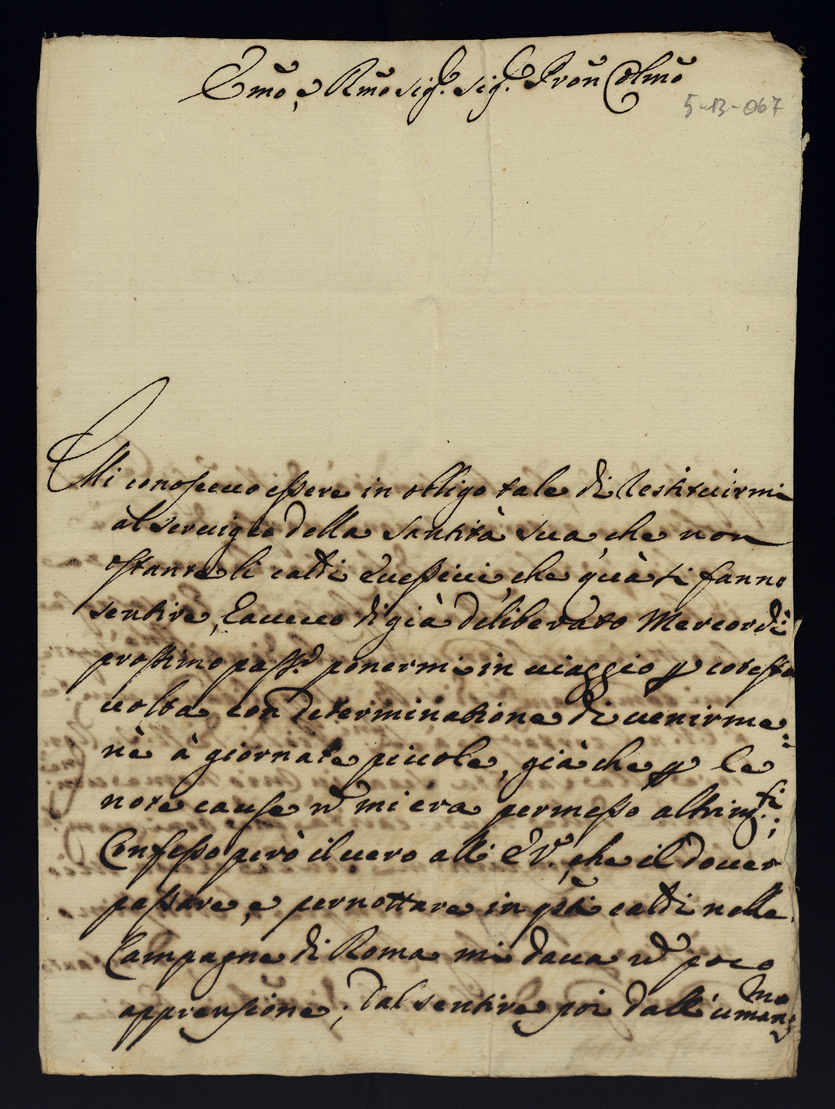 Emo, e Rmo Sigr. Sigr. Pron Colmo
5-B-067
Mi conoscevo essere in obligo tale di restituirmi
al servigio della Santità sua che non
ostante li caldi eccessivi, che quà si fanno
sentire, havevo di già deliberato Mercordì
prossimo pass.o ponermi in viaggio p cotesta
volta con determinatione di venirme=
nè à giornate piccole, già che p le
note cause nō mi era permesso altrimti;
Confesso però il vero all' E.V., che il dover
passare, e pernottare in qsti caldi nelle
Campagne di Roma mi dava nō poco
apprensione; dal sentire poi dall' umanma